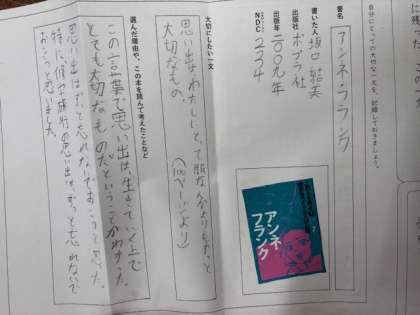 自分にとっての大切な一文を、記録しておきましょう。
書名
アンネ・フランク
書いた人
坂口 結美
出版社
ポプラ社
出版年
二〇〇九年
NDC
234
アンネ
フランク
大切にしたい一文
思い出は、わたしにとって服なんかよりもずっと
大切なもの。
(100ページより)
選んだ理由や、この本を読んで考えたことなど
この言葉で思い出は、生きていく上で
とても大切なものだということがわかった。
思い出はずっと忘れないでおこうと思った。
特に修学旅行の思い出は、ずっと忘れないで
おこうと思いました。